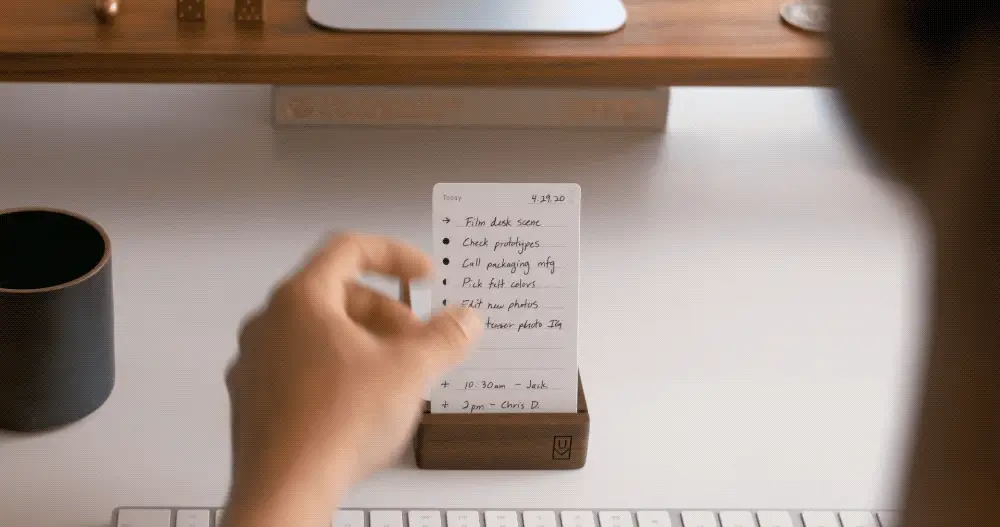 Today 4.29.20
→ Film desk scene
● Check prototypes
● Call packaging mfg
Pick felt colors
Edit new photos
teaser photo IG
+ 10:30am – Jack
+ 2pm – Chris D.